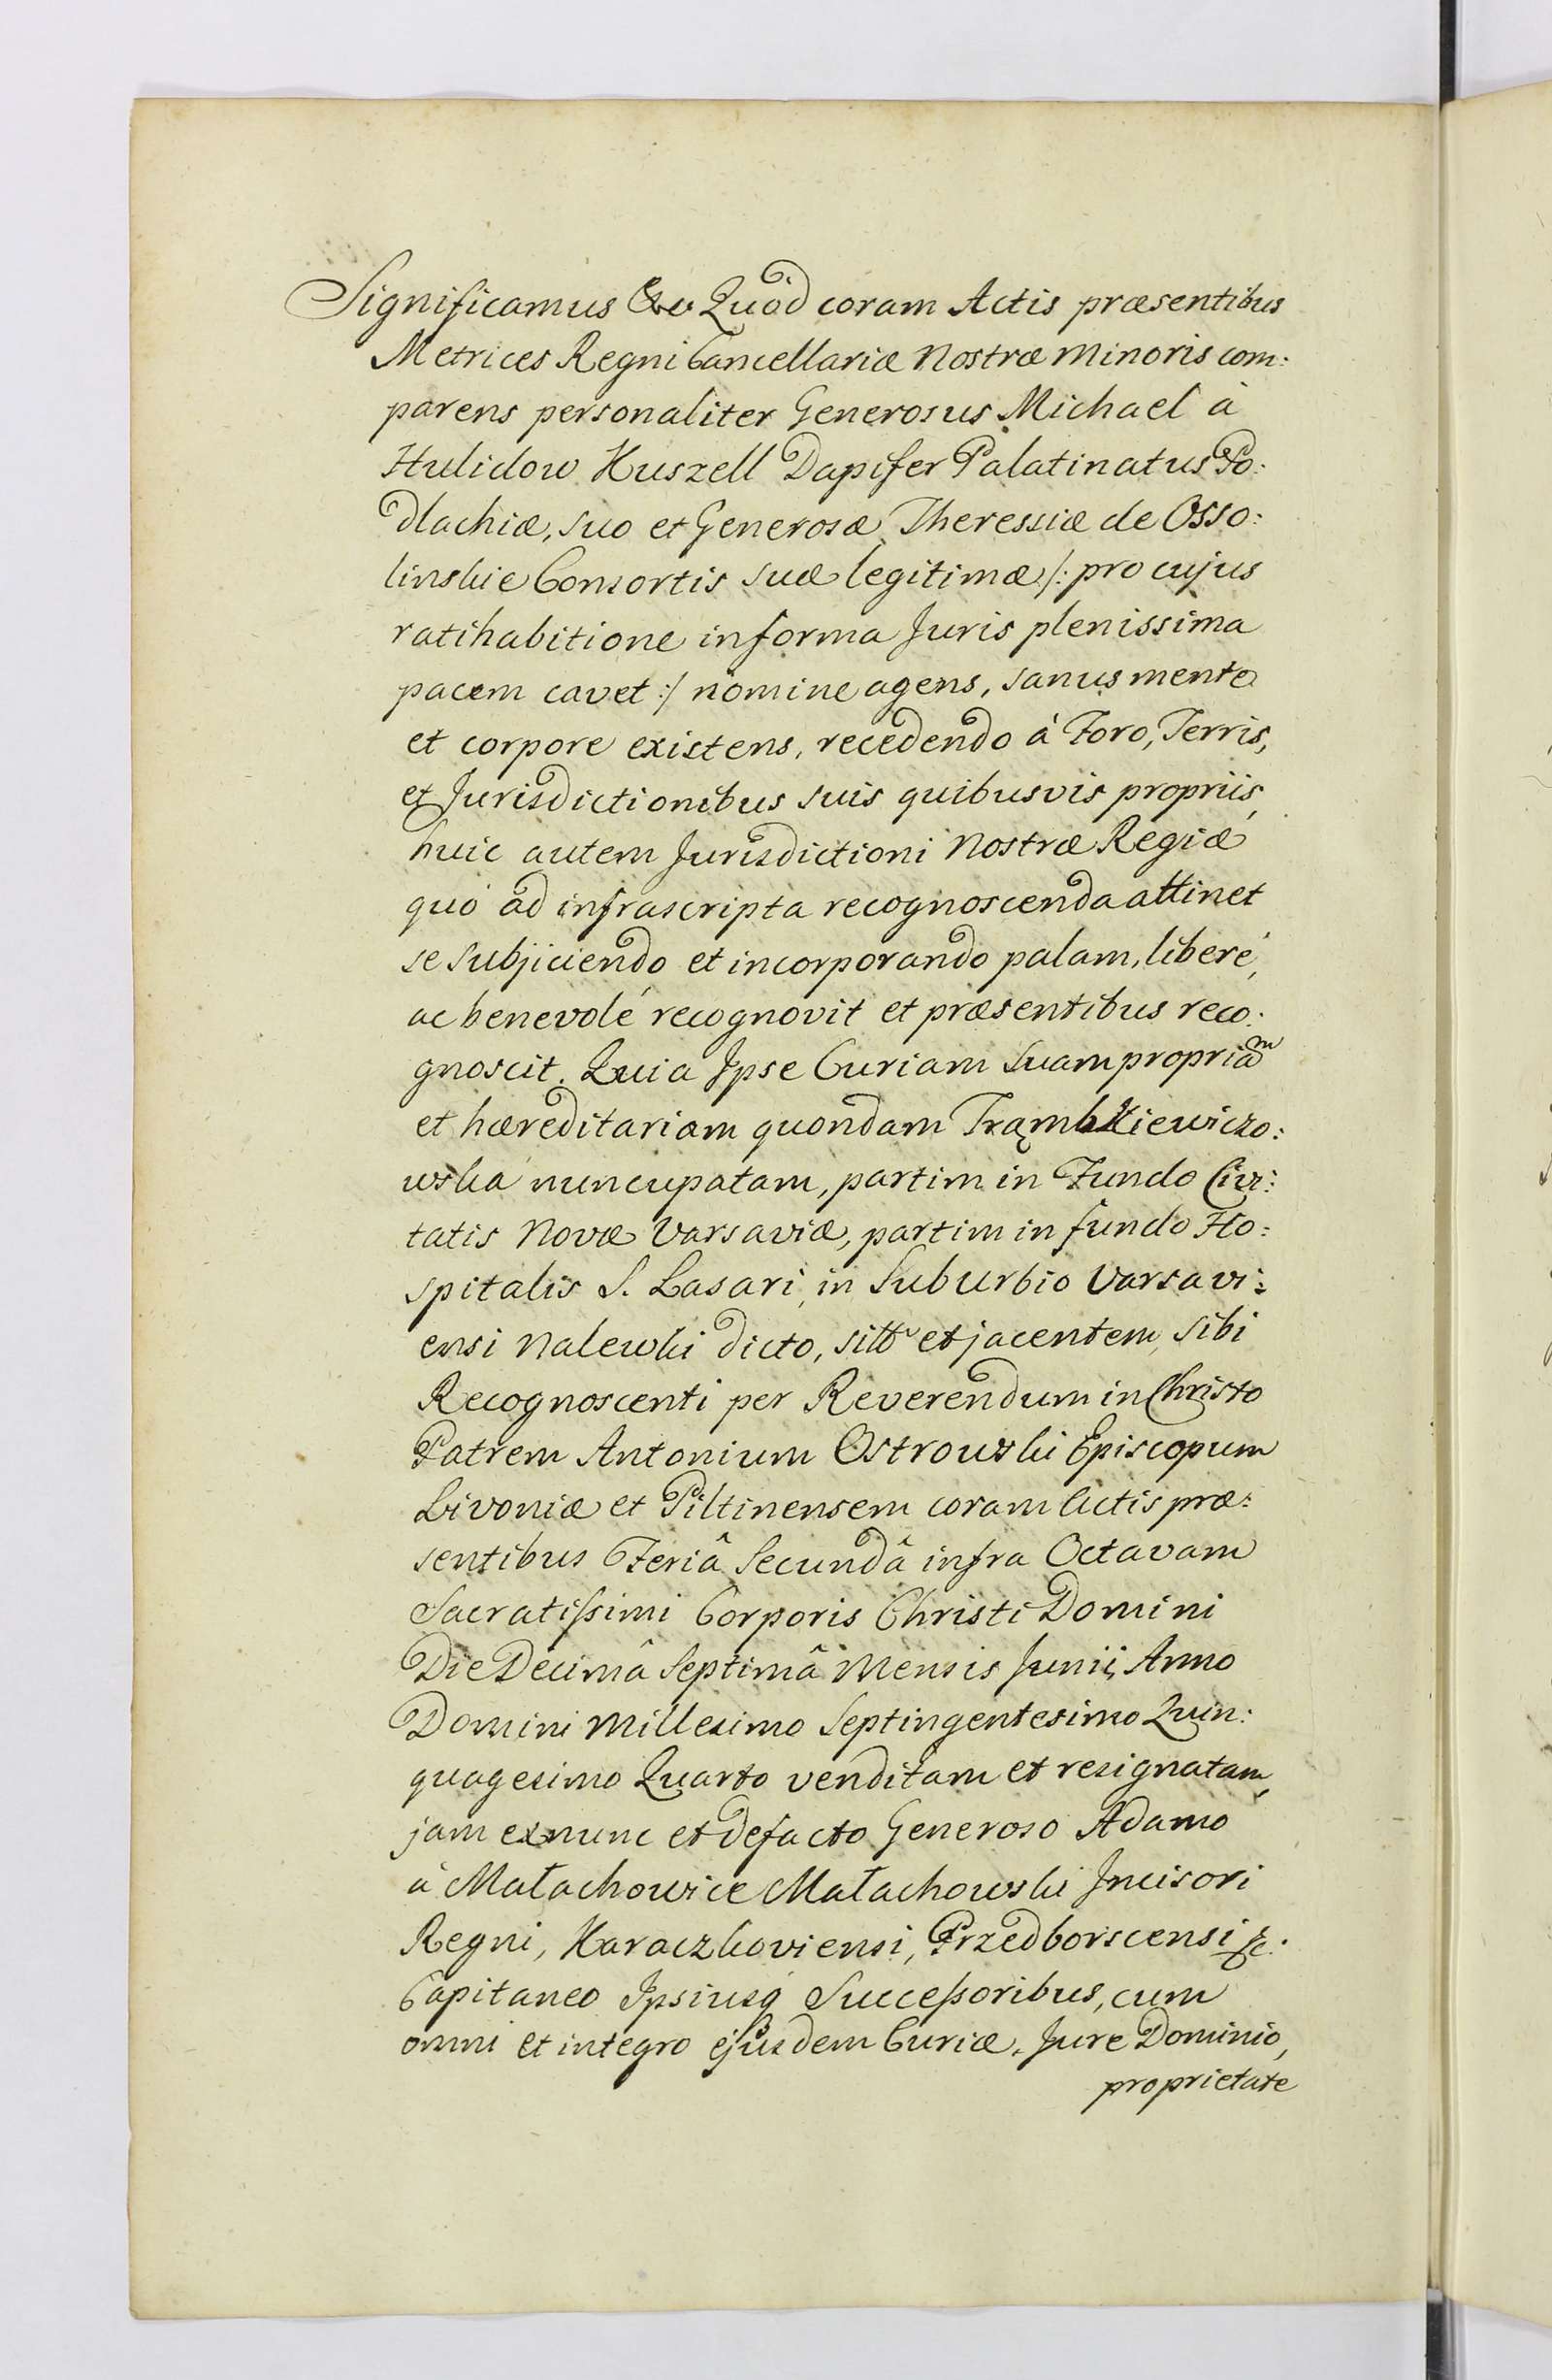 Significamus &c Quòd coram Actis præsentibus
Metrices Regni Cancellariæ Nostræ Minoris com:
parens personaliter Generosus Michael à
Hulidow Kuszell Dapifer Palatinatus Po:
dlachiæ, suo et Generosæ Theressiæ de Osso:
linskie Consortis suæ legitimæ /: pro cujus
ratihabitione in forma Juris plenissima
pacem cavet :/ nomine agens, sanus mente
et corpore existens, recedendo à Foro, Terris,
et Jurisdictionibus suis quibusvis propriis,
huic autem Jurisdictioni Nostræ Regiæ
quó ad infrascripta recognoscenda attinet
se subjiciendo et incorporando palam, liberé,
ac benevolé recognovit et præsentibus reco:
gnoscit. Quia Ipse Curiam suam propriam
et hæreditariam quondam Trąmbkiewiczo:
wska nuncupatam, partim in Fundo Civi:
tatis Novæ Varsaviæ, partim in fundo Ho:
spitalis S. Lasari, in Suburbio Varsavi:
ensi Nalewki dicto, sitt et jacentem, sibi
Recognoscenti per Reverendum in Christo
Patrem Antonium Ostrowski Episcopum
Livoniæ et Piltinensem coram Actis præ:
sentibus Feriâ Secundâ infra Octavam
Sacratissimi Corporis Christi Domini
Die Decimâ Septimâ Mensis Junii, Anno
Domini Millesimo Septingentesimo Quin:
quagesimo Quarto venditam et resignatam,
jam ex nunc et de facto Generoso Adamo
à Małachowice Małachowski Incisori
Regni, Karaczkoviensi, Przedborscensi &c.
Capitaneo Ipsiusq Successoribus, cum
omni et integro ejusdem Curiæ, Jure Dominio,
proprietate